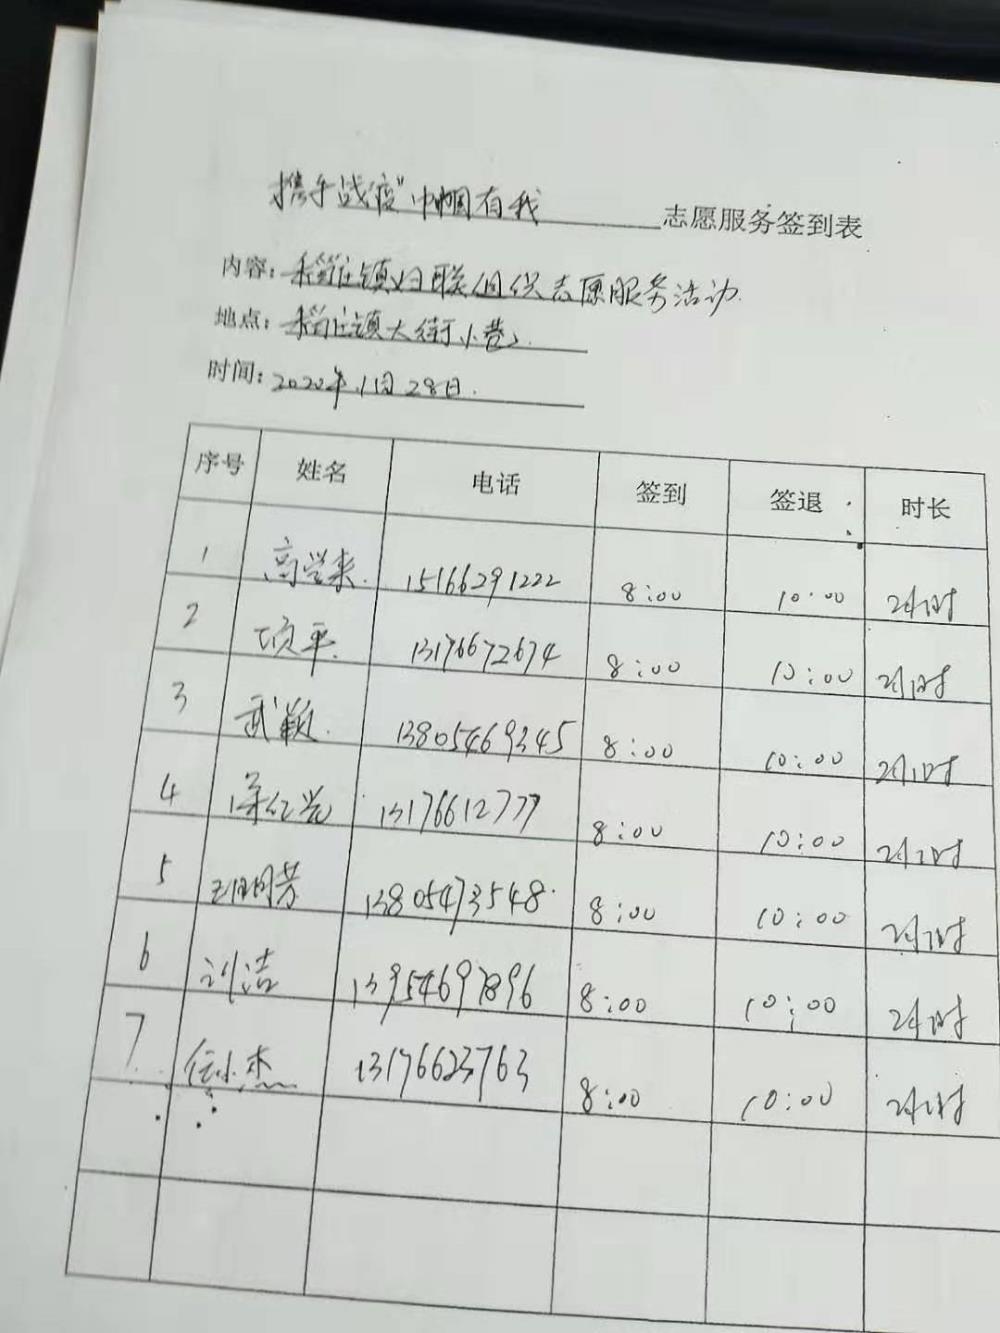 携手战疫"巾帼有我 志愿服务签到表
内容：稻庄镇妇联组织志愿服务活动
地点：稻庄镇大街小巷
时间：2020年1月28日.
序号 姓名 电话 签到 签退 时长
1 高学来 15166291222 8:00 10:00 2小时
2 项平 13176672674 8:00 10:00 2小时
3 武颖 13805469345 8:00 10:00 2小时
4 13176612777 8:00 10:00 2小时
5 13805473548 8:00 10:00 2小时
6 刘洁 13954697896 8:00 10:00 2小时
7 任小杰 13176623763 8:00 10:00 2小时